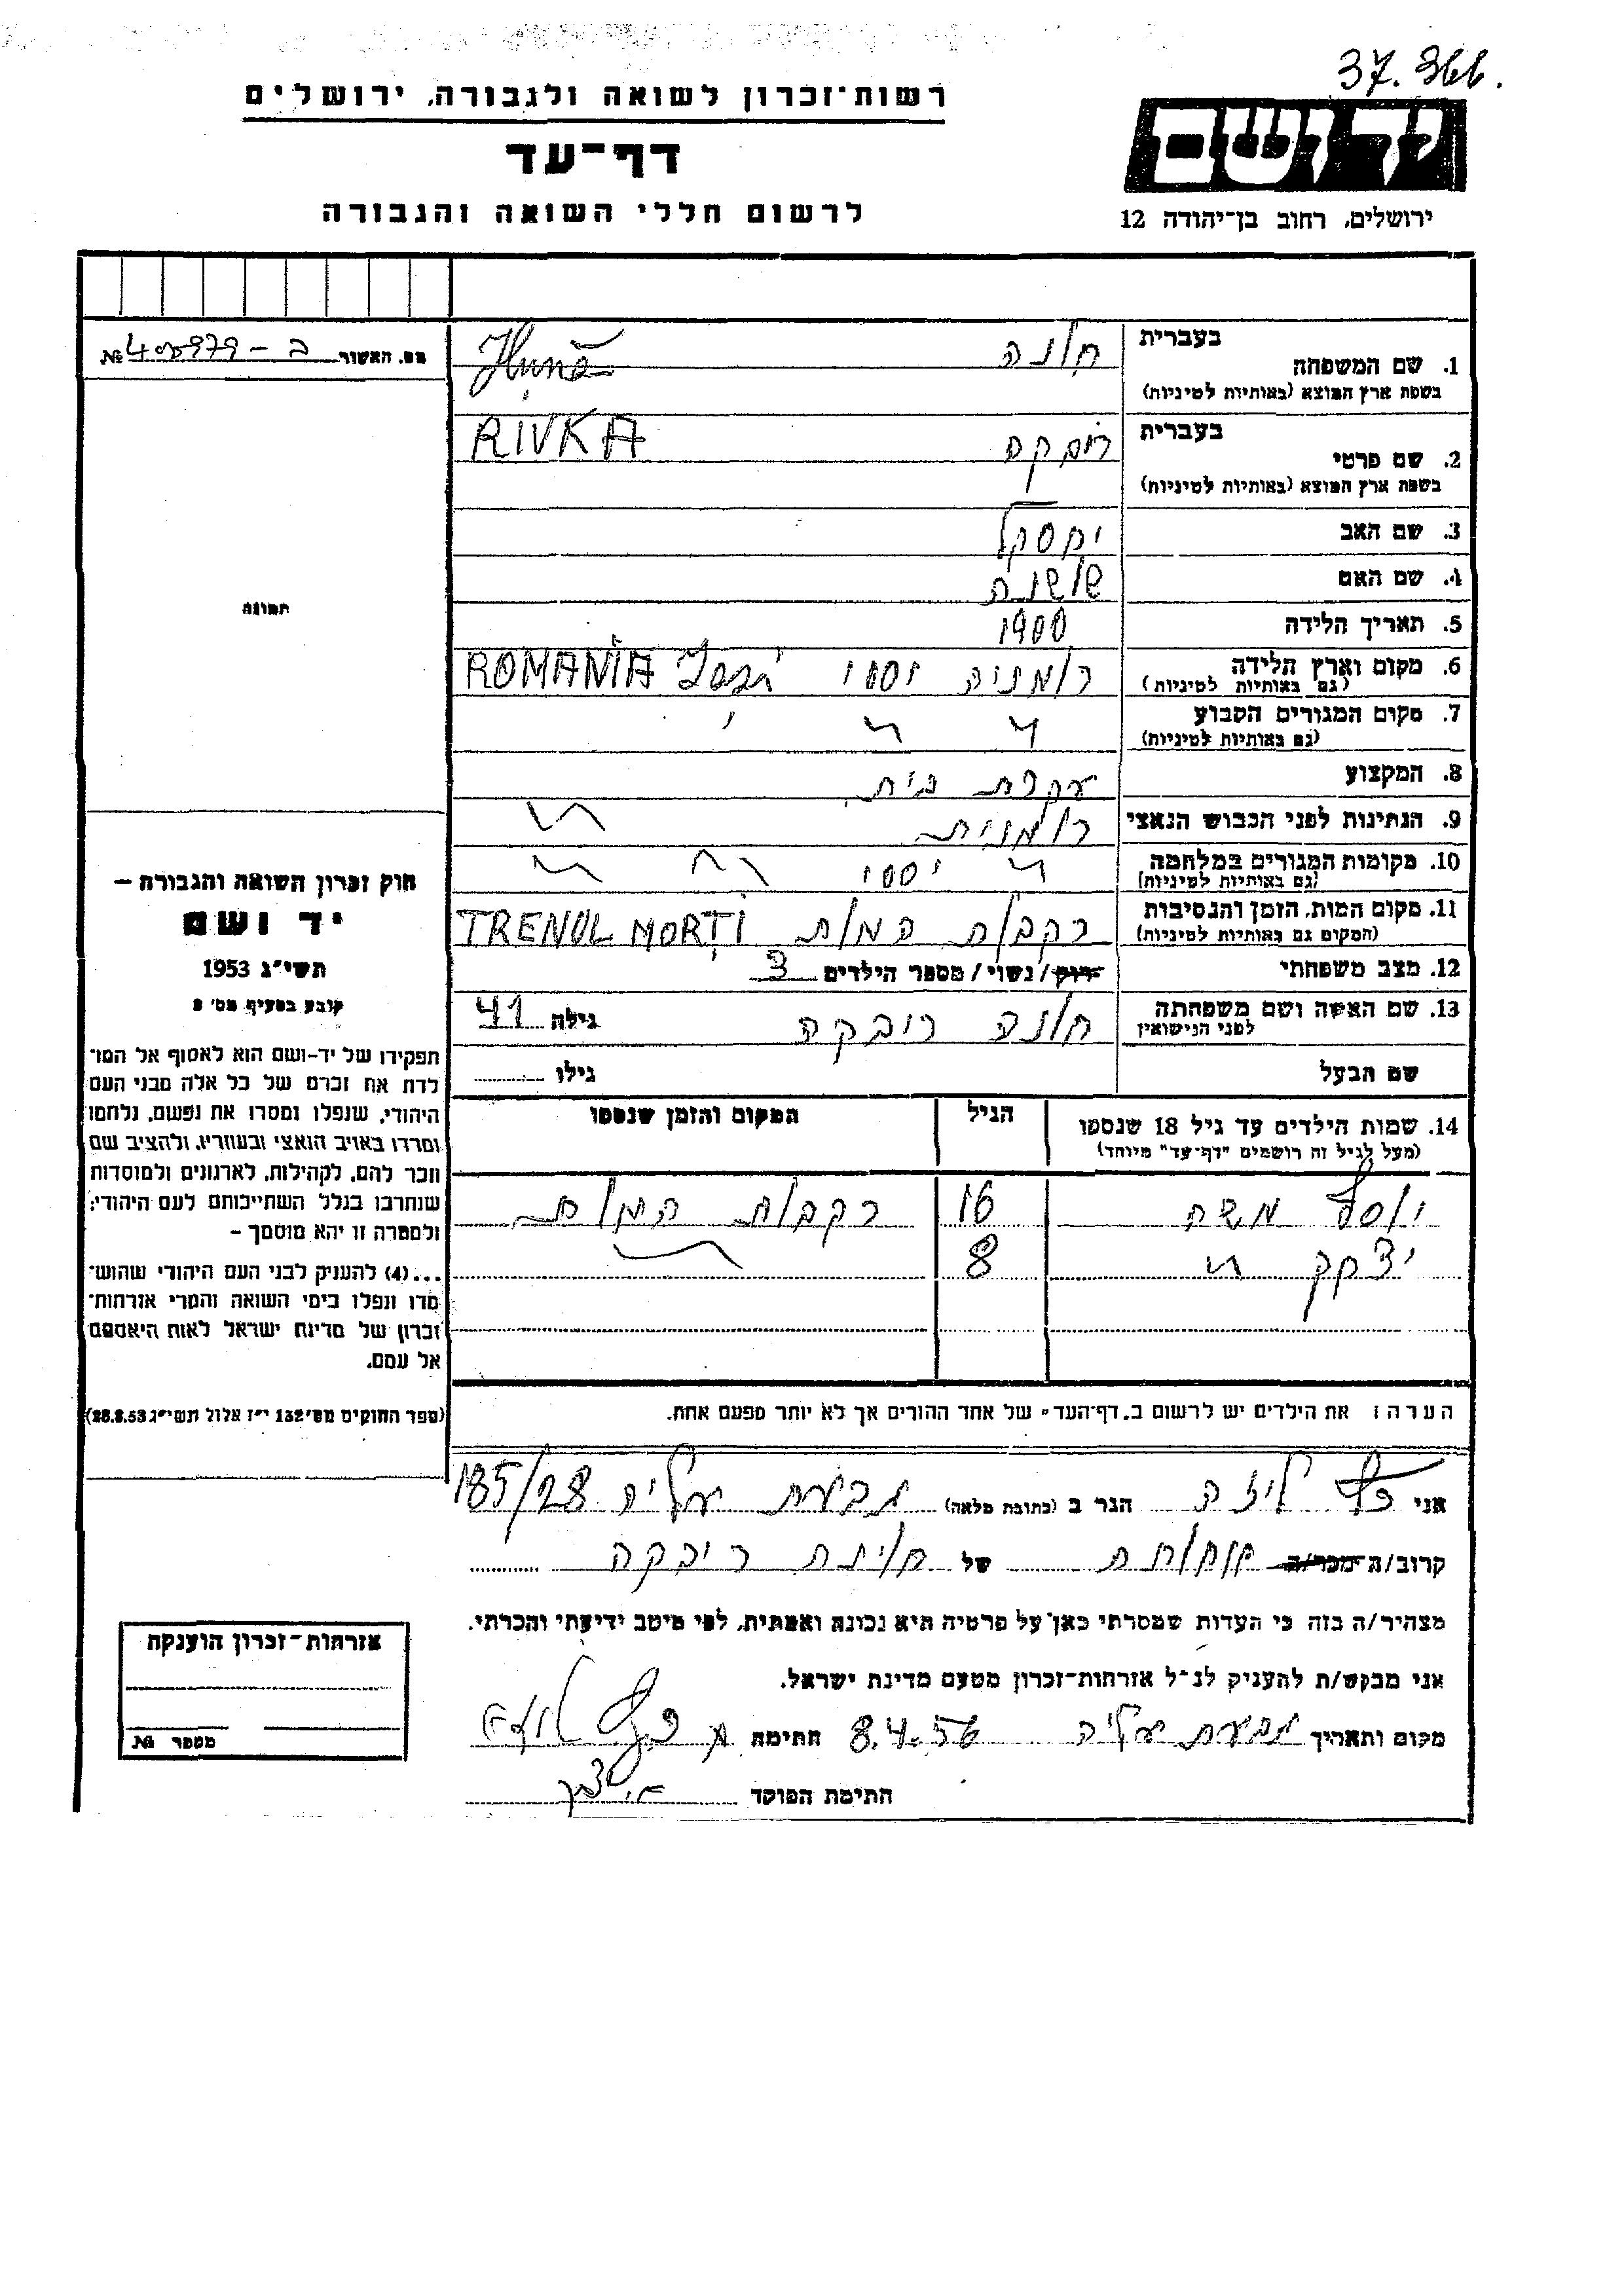 37.366.
רשות־זכרון לשואה ולגבורה, ירושלים
דף־עד
לרשום חללי השואה והגבורה
יד ושם
ירושלים, רחוב בן־יהודה 12
מס. האשור ב - 408979 №
בעברית
1. שם המשפחה חונה Hună
בשפת ארץ המוצא (באותיות לטיניות)
בעברית
2. שם פרטי RIVKA
בשפת ארץ המוצא (באותיות לטיניות)
3. שם האב
4. שם האם שושנה
5. תאריך הלידה 1900
6. מקום וארץ הלידה רומניה יססי ROMANIA Iași
(גם באותיות לטיניות)
7. מקום המגורים הקבוע " " "
(גם באותיות לטיניות)
8. המקצוע עקרת בית
9. הנתינות לפני הכבוש הנאצי רומנית "
10. מקומות המגורים במלחמה " יססי " "
(גם באותיות לטיניות)
11. מקום המות, הזמן והנסיבות רכבות המות TRENUL MORȚI
(המקום גם באותיות לטיניות)
12. מצב משפחתי רווק/נשוי/מספר הילדים 3
13. שם האשה ושם משפחתה חונה ריבקה גילה 41
לפני הנישואין
שם הבעל גילו
14. שמות הילדים עד גיל 18 שנספו הגיל המקום והזמן שנספו
(מעל לגיל זה רושמים "דף־עד" מיוחד)
יוסף משה 16 רכבות המות
יצחק " 8 "
הערה: את הילדים יש לרשום ב„דף־העד" של אחד ההורים אך לא יותר מפעם אחת.
אני כץ ליזה הגר ב (כתובת מלאה) גבעת עליה 185/28
קרוב/ה מכר/ה של חונה ריבקה
מצהיר/ה בזה כי העדות שמסרתי כאן על פרטיה היא נכונה ואמתית, לפי מיטב ידיעתי והכרתי.
אני מבקש/ת להעניק לנ"ל אזרחות־זכרון מטעם מדינת ישראל.
מקום ותאריך גבעת עליה 8.4.56 חתימה
חתימת הפוקד
תמונה
חוק זכרון השואה והגבורה —
יד ושם
תשי"ג 1953
קובע בסעיף מס' 2
תפקידו של יד־ושם הוא לאסוף אל המו־
לדת את זכרם של כל אלה מבני העם
היהודי, שנפלו ומסרו את נפשם, נלחמו
ומרדו באויב הנאצי ובעוזריו, ולהציב שם
וזכר להם, לקהילות, לארגונים ולמוסדות
שנחרבו בגלל השתייכותם לעם היהודי;
ולמטרה זו יהא מוסמך —
...(4) להעניק לבני העם היהודי שהוש־
מדו ונפלו בימי השואה והמרי אזרחות־
זכרון של מדינת ישראל לאות היאספם
אל עמם.
(ספר החוקים מס' 132 י"ז אלול תשי"ג 28.8.53)
אזרחות־זכרון הוענקה
מספר №